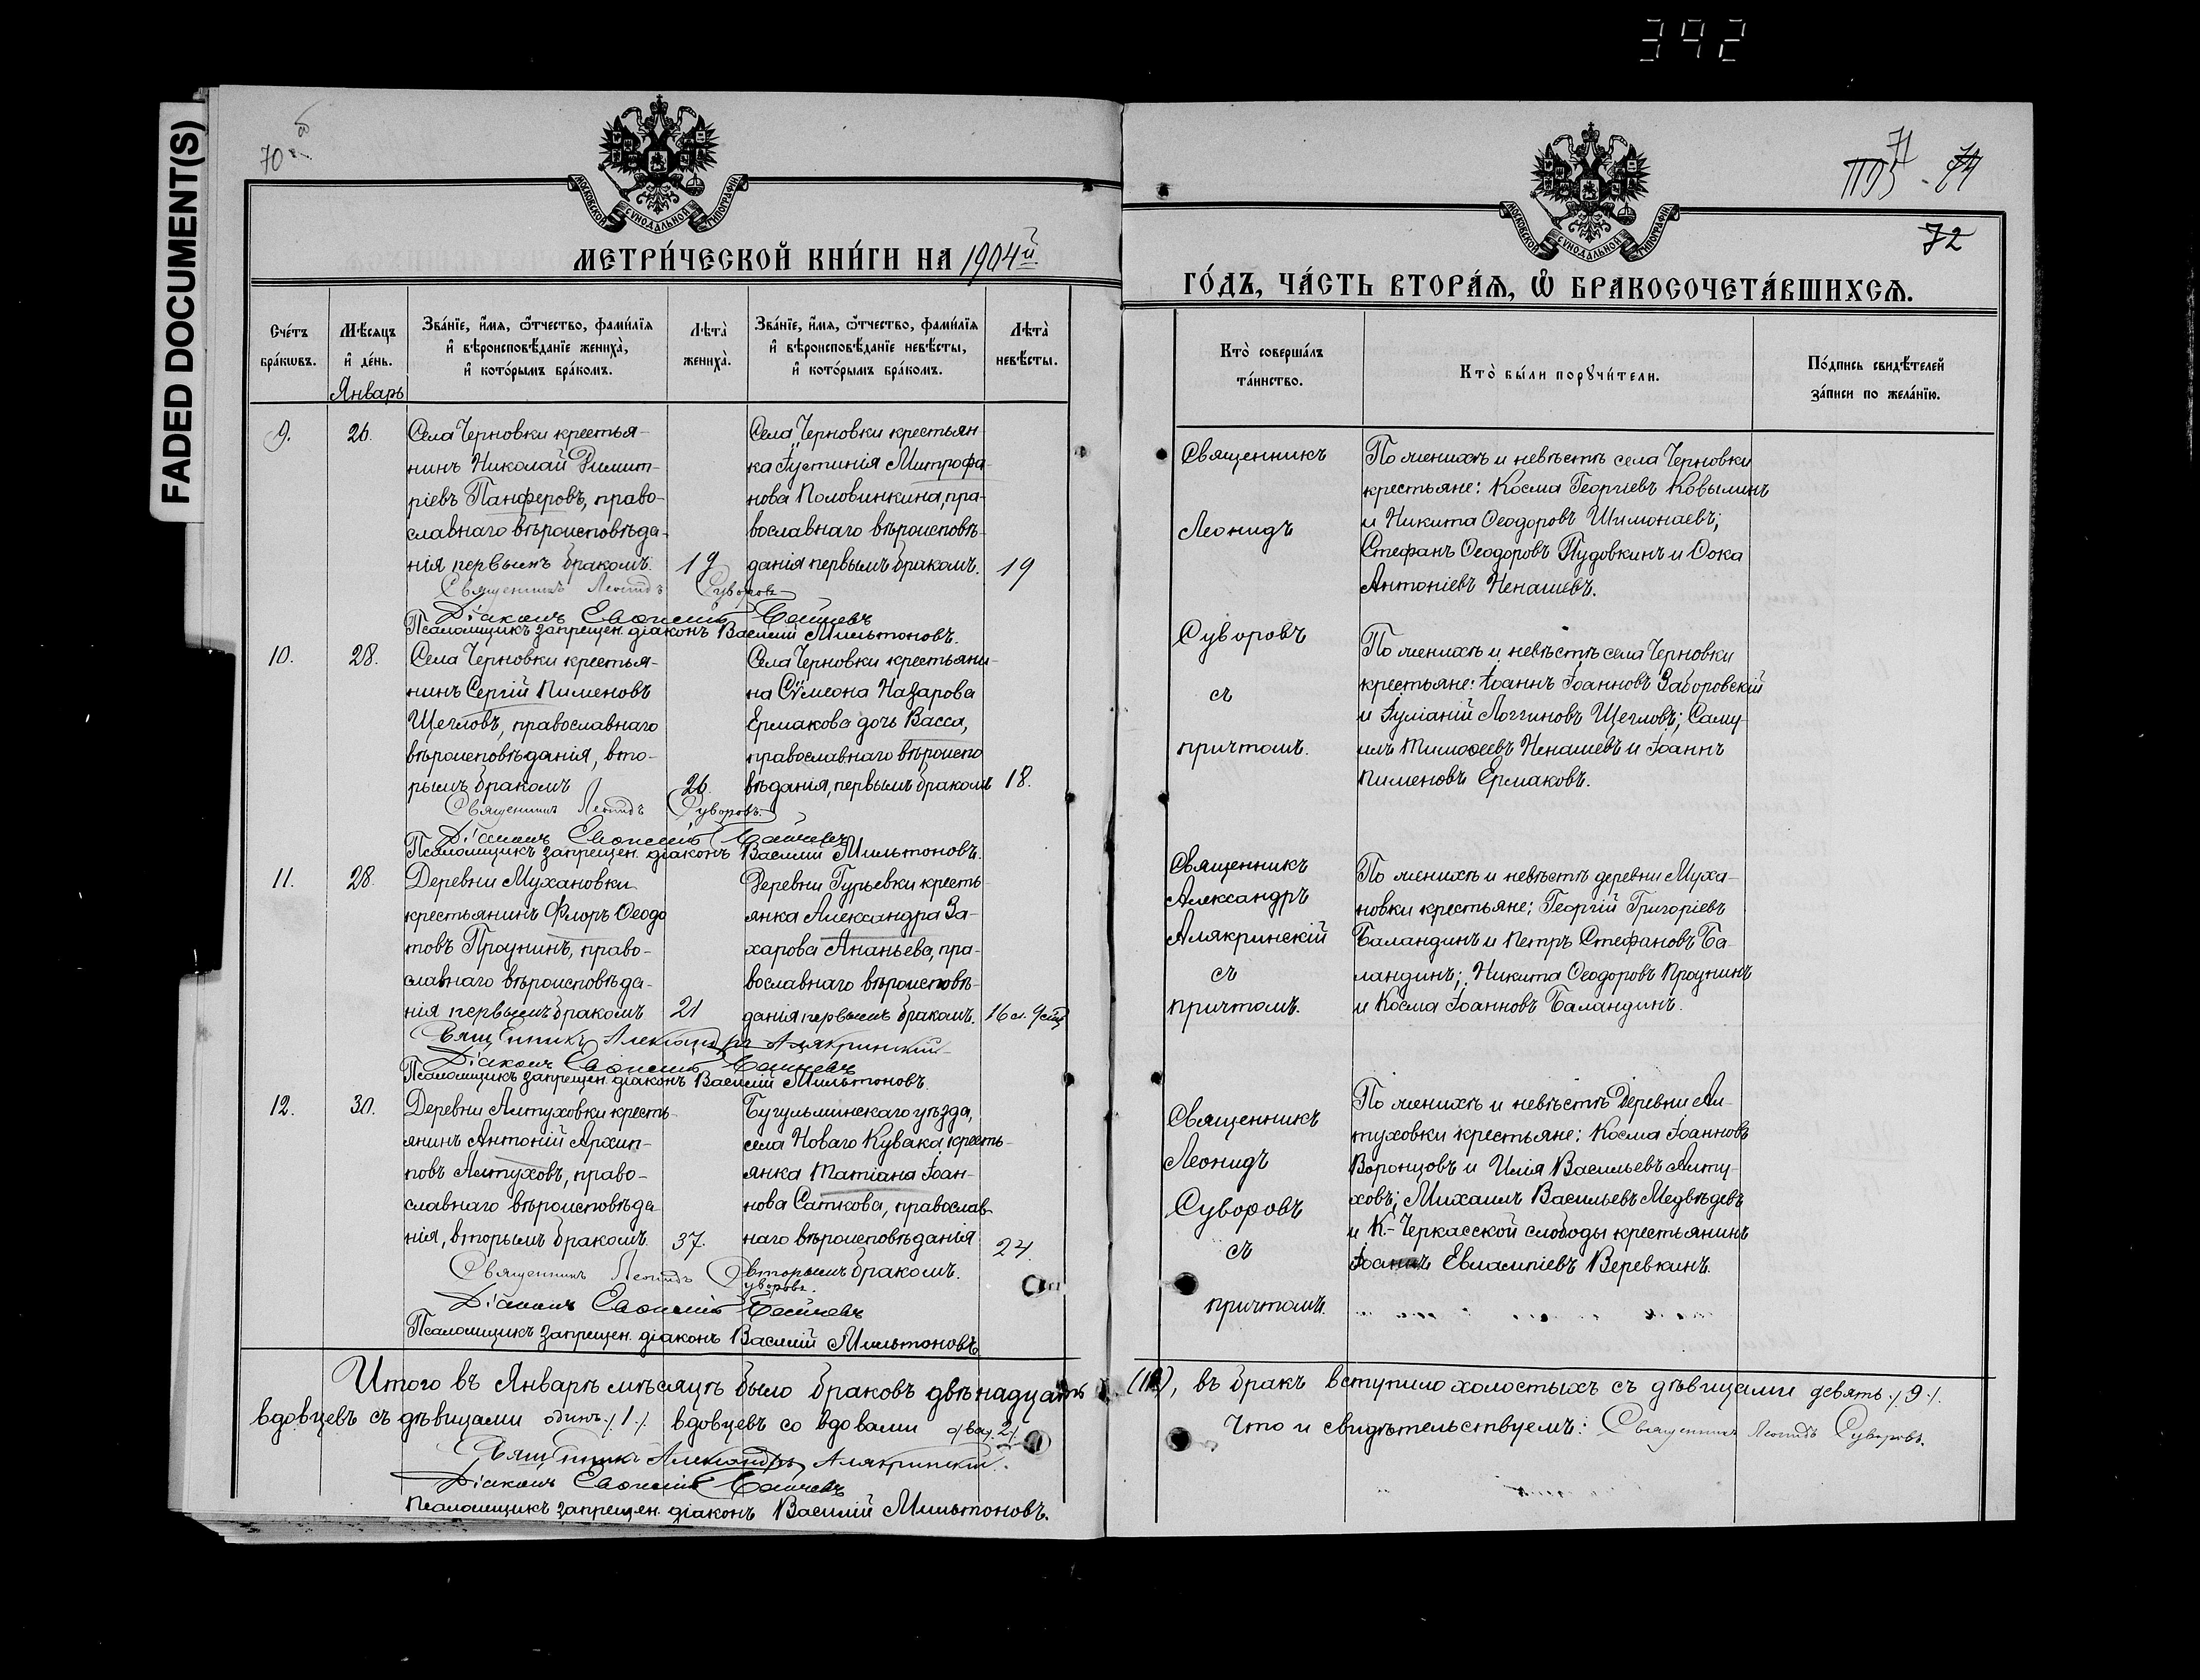 392
FADED DOCUMENT(S)
70
МОСКОВСКОЙ СѴНОДАЛЬНОЙ ТИПОГРАФІИ.
МЕТРИ́ЧЕСКОЙ КНИ́ГИ НА 1904й
Сче́тъ бра́кѡвъ.
Мѣ́сяцъ и҆ де́нь.
Январь
Зва́нїе, и҆́мя, ѻ҆́тчество, фами́лїя
и҆ вѣроисповѣ́данїе жениха̀,
и҆ кото́рымъ бра́комъ.
Лѣта̀ жениха̀.
Зва́нїе, и҆́мя, ѻ҆́тчество, фами́лїя
и҆ вѣроисповѣ́данїе невѣ́сты,
и҆ кото́рымъ бра́комъ.
Лѣта̀ невѣ́сты.
9.
26.
Села Черновки крестья-
нинъ Николай Димит-
ріевъ Панферовъ, право-
славнаго вѣроисповѣда-
нія первымъ бракомъ.
19
Села Черновки крестьян-
ка Іустинія Митрофа-
нова Половинкина, пра-
вославнаго вѣроисповѣ-
данія первымъ бракомъ.
19
Священникъ Леонидъ Суворовъ
Діаконъ
Псаломщикъ запрещен. діаконъ Василій Мильтоновъ.
10.
28.
Села Черновки крестья-
нинъ Сергій Пименовъ
Щегловъ, православнаго
вѣроисповѣданія, вто-
рымъ бракомъ
26.
Села Черновки крестьяни-
на Сѵмеона Назарова
Ермакова дочь Васса,
православнаго вѣроиспо
вѣданія, первымъ бракомъ
18.
Священникъ Леонидъ Суворовъ.
Діаконъ
Псаломщикъ запрещен. діаконъ Василій Мильтоновъ.
11.
28.
Деревни Мухановки
крестьянинъ Флоръ Ѳеодо
товъ Проунинъ, право-
славнаго вѣроисповѣда-
нія первымъ бракомъ
21
Деревни Гурьевки кресть-
янка Александра За-
харова Ананьева, пра-
вославнаго вѣроисповѣ-
данія первымъ бракомъ.
16
Священникъ Александръ Алякринскій
Діаконъ
Псаломщикъ запрещен. діаконъ Василій Мильтоновъ.
12.
30.
Деревни Алтуховки кресть-
янинъ Антоній Архип-
повъ Алтуховъ, право-
славнаго вѣроисповѣда
нія, вторымъ бракомъ.
37.
Бугульминскаго уѣзда,
села Новаго Кувака кресть-
янка Татіана Іоан-
нова Саткова, православ-
наго вѣроисповѣданія
вторымъ бракомъ.
24
Священникъ Леонидъ Суворовъ.
Діаконъ
Псаломщикъ запрещен. діаконъ Василій Мильтоновъ
Итого въ Январѣ мѣсяцѣ было браковъ двѣнадцать
вдовцевъ съ дѣвицами одинъ ./ 1 ./. вдовцевъ со вдовами два ./. 2 ./.
Священникъ Александръ Алякринскій.
Діаконъ
Псаломщикъ запрещен. діаконъ Василій Мильтоновъ.
71
72
МОСКОВСКОЙ СѴНОДАЛЬНОЙ ТИПОГРАФІИ.
ГО́ДЪ, ЧА́СТЬ ВТОРА́Ѧ, Ѽ БРАКОСОЧЕТА́ВШИХСѦ.
Кто̀ соверша́лъ
та́инство.
Кто̀ бы́ли порꙋчи́тели.
По́дпись свидѣ́телей
за́писи по жела́нїю.
Священникъ
Леонидъ
Суворовъ
съ
причтомъ.
По женихѣ и невѣстѣ села Черновки
крестьяне: Косма Георгіевъ Ковылинъ
и Никита Ѳеодоровъ Шимонаевъ;
Стефанъ Ѳеодоровъ Пудовкинъ и Ѳока
Антоніевъ Ненашевъ.
По женихѣ и невѣстѣ села Черновки
крестьяне: Іоаннъ Іоанновъ Заборовскій
и Іуліаній Логгиновъ Щегловъ; Саму-
илъ Тимоѳеевъ Ненашевъ и Іоаннъ
Пименовъ Ермаковъ.
Священникъ
Александръ
Алякринскій
съ
причтомъ.
По женихѣ и невѣстѣ деревни Муха-
новки крестьяне; Георгій Григоріевъ
Баландинъ и Петръ Стефановъ Ба-
ландинъ; Никита Ѳеодоровъ Проунинъ
и Косма Іоанновъ Баландинъ.
Священникъ
Леонидъ
Суворовъ
съ
причтомъ.
По женихѣ и невѣстѣ деревни Ал-
туховки крестьяне: Косма Іоанновъ
Воронцовъ и Илія Васильевъ Алту-
ховъ; Михаилъ Васильевъ Медвѣдевъ
и К-Черкасской слободы крестьянинъ
Іоаннъ Евлампіевъ Веревкинъ.
(12), въ бракъ вступило холостыхъ съ дѣвицами девять ./ 9 ./.
Что и свидѣтельствуемъ: Священникъ Леонидъ Суворовъ.